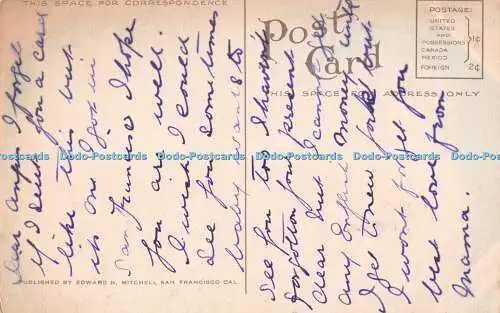 THIS SPACE FOR CORRESPONDENCE
Post Card
THIS SPACE FOR ADDRESS ONLY
POSTAGE:
UNITED STATES AND POSSESSIONS CANADA MEXICO 1¢
FOREIGN 2¢
Dear I forget
if I sent you a card
like this but
its one I got in
San Francisco I hope
you are well.
I wish I could
see you sometimes
baby wants to
see you too I havent
forgotten your present
dear but I cant get
any money until
I get to New York but
I wont forget you
best love from
Mama.
PUBLISHED BY EDWARD H. MITCHELL SAN FRANCISCO CAL.
Dodo-Postcards Dodo-Postcards Dodo-Postcards Dodo-Postcards
Dodo-Postcards Dodo-Postcards Dodo-Postcards Dodo-Postcards